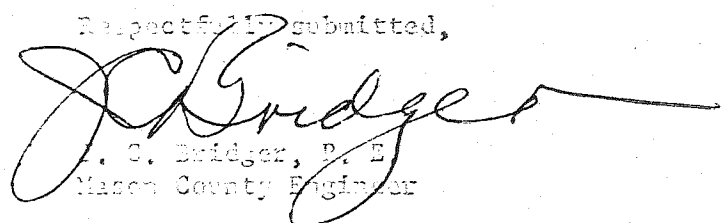 Respectfully submitted,
JC Bridger
J. C. Bridger, P. E.
Mason County Engineer